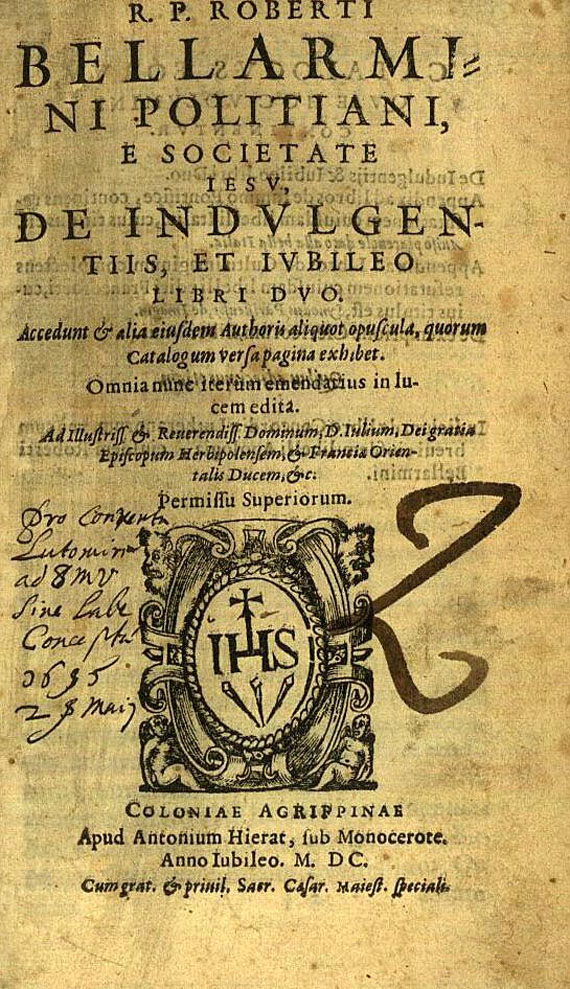 R. P. ROBERTI
BELLARMI=
NI POLITIANI,
E SOCIETATE
IESV,
DE INDVLGEN-
TIIS, ET IVBILEO
LIBRI DVO.
Accedunt & alia eiuſdem Authoris aliquot opuſcula, quorum
Catalogum verſa pagina exhibet.
Omnia nunc iterùm emendatius in lu-
cem edita.
Ad Illuſtriſſ. & Reuerendiſſ. Dominum, D. Iulium, Dei gratia
Epiſcopum Herbipolenſem, & Franciæ Orien-
talis Ducem, &c.
Permiſſu Superiorum.
Pro Conventu
ad 8mv
sine Labe
1695
28 Maij
IHS
COLONIAE AGRIPPINAE
Apud Antonium Hierat, ſub Monocerote.
Anno Iubileo. M. DC.
Cum grat. & priuil. Sacr. Cæſar. Maieſt. ſpeciali.